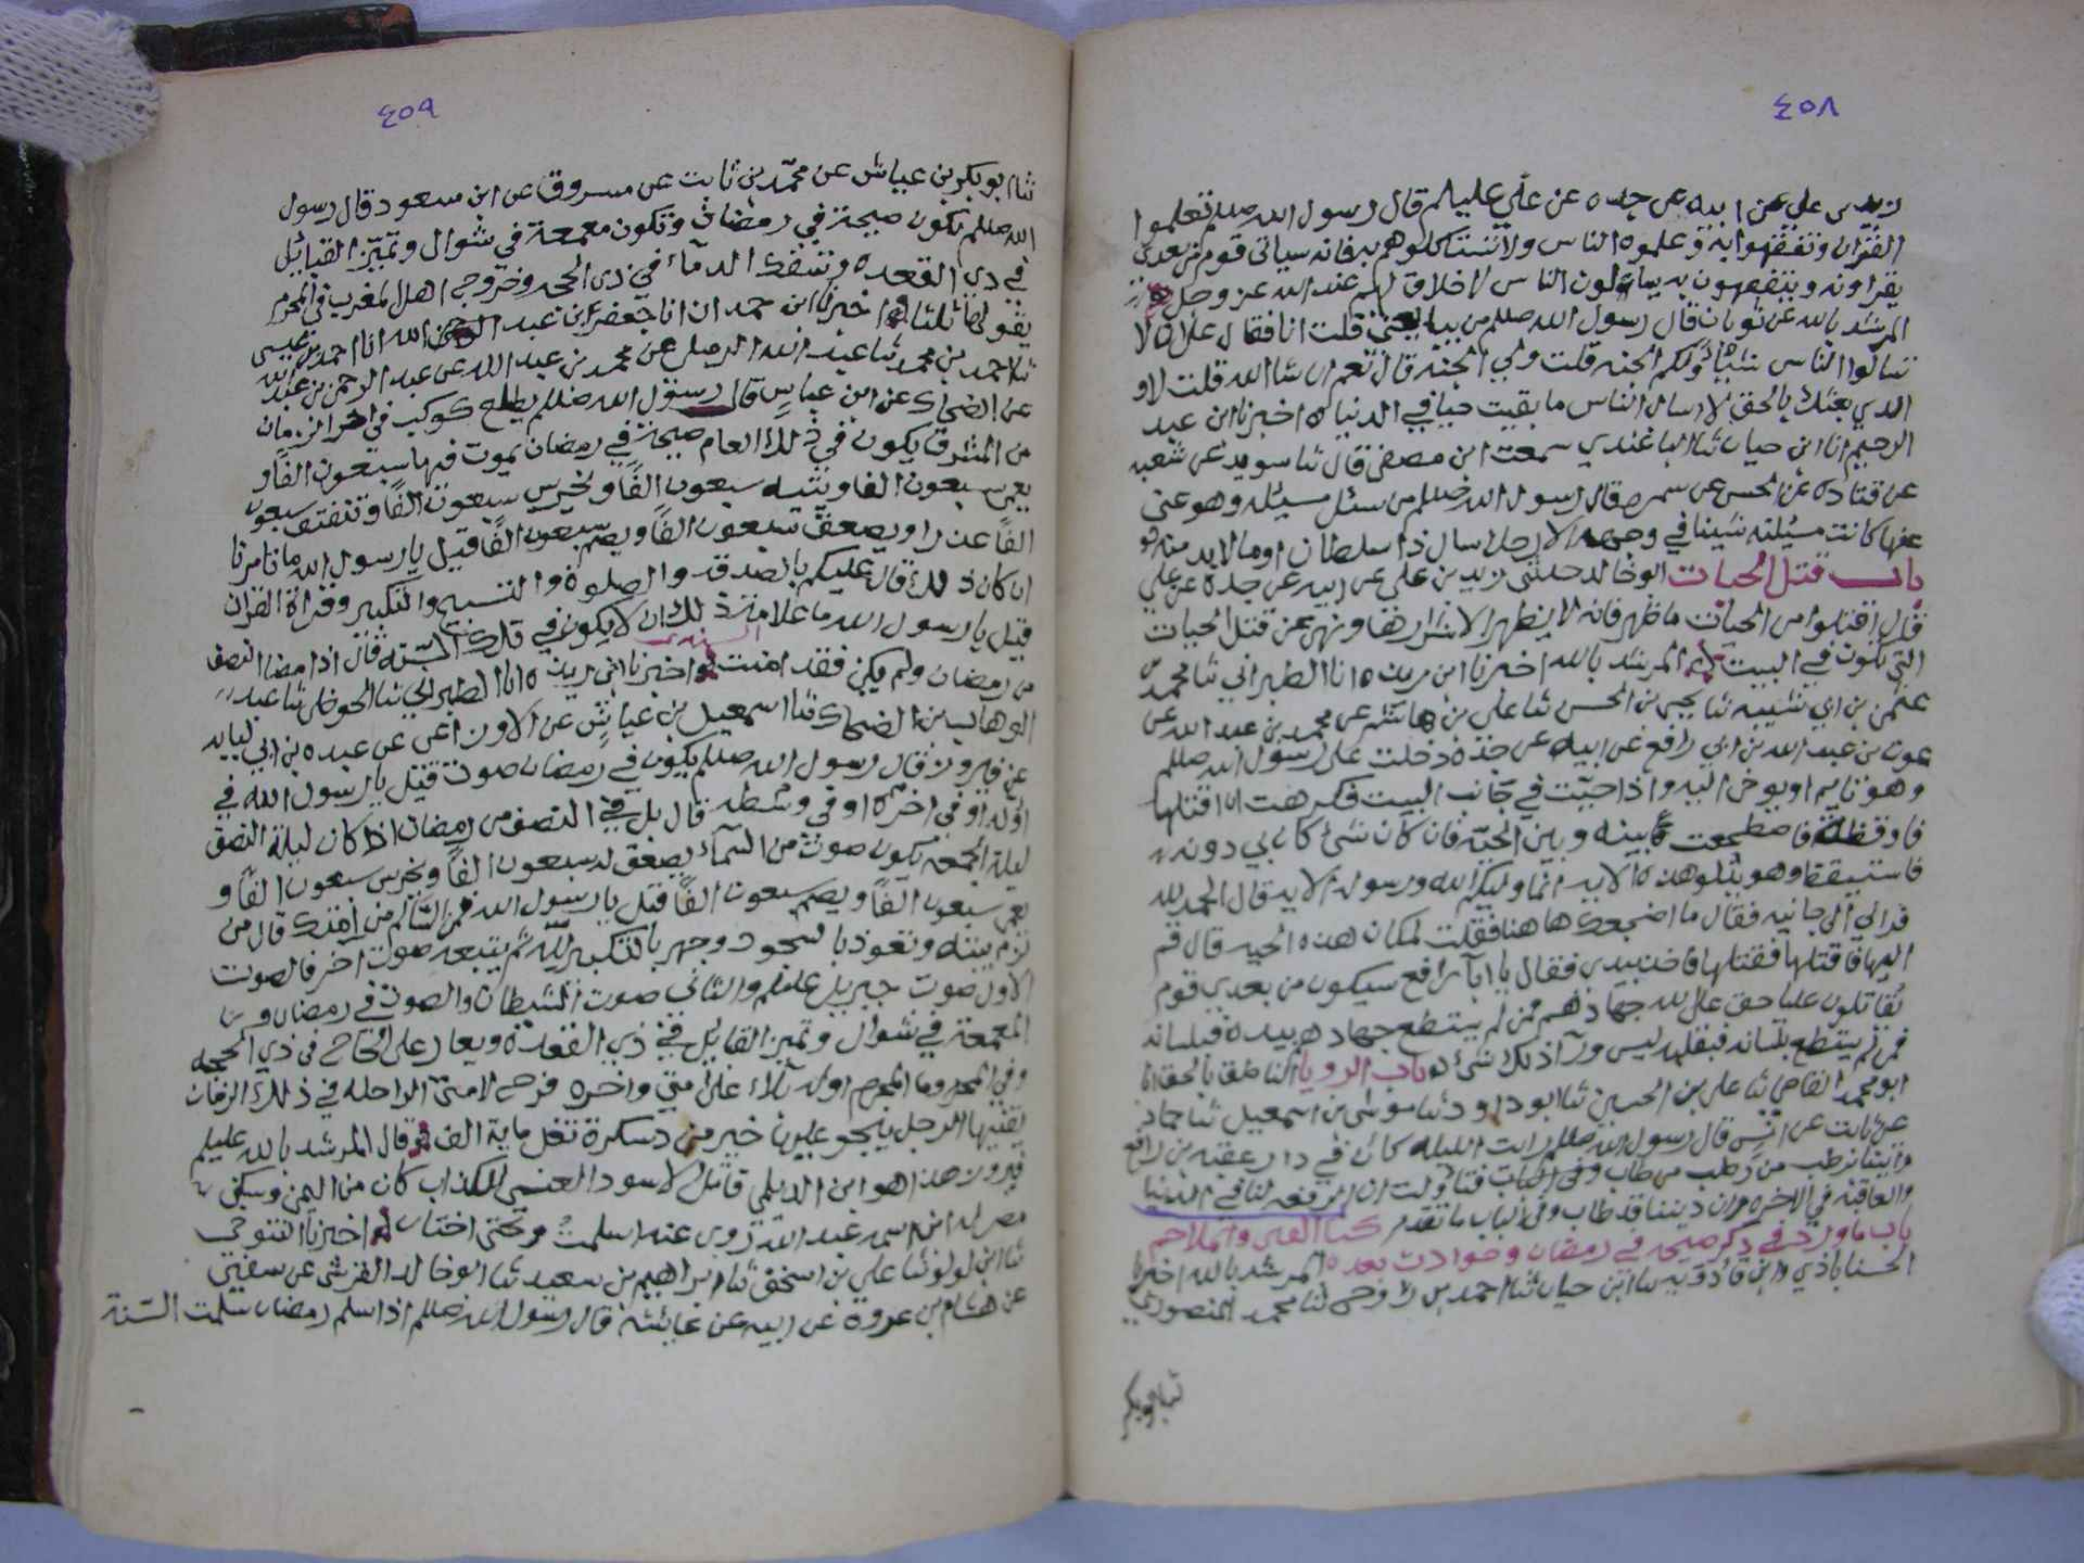 ٤٥٨
زيد بن علي عن ابيه عن جده عن علي عليلم قال رسول الله صللم تعلموا
القران وتفقهوا به وعلموه الناس ولا تستاكلوهم به فانه سياتي قوم من بعدي
يقراونه ويتفقهون به يسالون الناس لا خلاق لهم عند الله عز وجل
المرشد بالله عن ثوبان قال رسول الله صللم من قلت انا فقال على ان لا
تسالوا الناس شيا ولكم الجنه قلت ولي الجنه قال نعم ان شا الله قلت لا و
الذي بعثك بالحق لا اسال الناس ما بقيت حيا في الدنيا ه اخبرنا ابن عبد
الرحيم انا ابن حيان ثنا الباغندي سمعت ابن مصفى قال ثنا سويد عن شعبه
عن قتاده عن الحسن عن سمره قال رسول الله صللم من سئل مسيله وهو غني
عنها كانت مسيلته شينا في وجهه الا رجل سال ذا سلطان او ما لا بد منه
باب قتل الحيات ابو خالد حدثني زيد بن علي عن ابيه عن جده عن علي
قال اقتلوا من الحيات ما ظهر فانه لا يظهر الا شرارها ونهى عن قتل الحيات
التي تكون في البيت المرشد بالله اخبرنا ابن ريذه انا الطبراني ثنا محمد بن
عثمن بن ابي شيبه ثنا يحيى بن الحسن ثنا علي بن هاشم عن محمد بن عبد الله عن
عون بن عبد الله بن ابي رافع عن ابيه عن جده دخلت على رسول الله صللم
وهو نايم او يوحى اليه واذا حيّة في جانب البيت فكرهت ان اقتلها
فاوقظه فاضطجعت بينه وبين الحيّة فان كان شيء كان بي دونه
فاستيقظ وهو يتلو هذه الايه انما وليكم الله ورسوله الايه قال الحمد لله
فراني الى جانبه فقال ما اضجعك ها هنا فقلت لمكان هذه الحيه قال قم
اليها فاقتلها فقتلها فاخذ بيدي فقال يا ابا رافع سيكون من بعدي قوم
يقاتلون عليا حق على الله جهادهم فمن لم يستطع جهادهم بيده فبلسانه
فمن لم يستطع بلسانه فبقلبه ليس ورآ ذلك شيء باب الرويا الناطق بالحق انا
ابو محمد القاضي ثنا علي بن الحسين ثنا ابو داود ثنا موسى بن اسمعيل ثنا حماد
عن ثابت عن انس قال رسول الله صللم رايت الليله كان في دار عقبه بن رافع
واتينا برطب من رطب بن طاب فتاولت ان الرفعه لنا في الدنيا
والعاقبه في الاخره وان ديننا قد طاب وفي الباب ما تقدم كتاب الفتن والملاحم
باب ما ورد في ذكر صيحه في رمضان وحوادث بعده المرشد بالله اخبرنا
ابن حيان ثنا احمد بن ثنا محمد المنصوري
ثنا ابو بكر
٤٥٩
ثنا ابو بكر بن عياش عن محمّد بن ثابت عن مسروق عن ابن مسعود قال رسول
الله صللم تكون صيحة في رمضان وتكون معمعة في شوال وتميّز القبائل
في ذي القعده وتسفك الدمآء في ذي الحجه وخروج اهل المغرب في المحرم
يقولها ثلثا اخبرنا ابن حمدان انا جعفر ابن عبد الله انا احمد بن عيسى
ثنا احمد بن محمد ثنا عبد الله عن محمد بن عبد الله عن عبد الرحمن بن عبد الله
عن الضحاك عن ابن عباسٍ قال رسول الله صللم يطلع كوكب في اخر الزمان
من المشرق يكون في ذلك العام صيحة في رمضان يموت فيها سبعون الفًا و
يعمى سبعون الفا ويتيه سبعون الفًا ويخرس سبعون الفًا وتنفتق سبعون
الفًا عذرا ويصعق سبعون الفًا ويصم سبعون الفًا قيل يا رسول الله ما تامرنا
ان كان ذلك قال عليكم بالصدقه والصلوة والتسبيح والتكبير وقراة القران
قيل يا رسول الله ما علامة ذلك ان لا يكون في تلك السّنه قال اذا مضا النصف
السنه
من رمضان ولم يكن فقد امنت اخبرنا ابن ريذه انا الطبراني ثنا الحوطي ثنا عبد
الوهاب بن الضحاك ثنا اسمعيل بن عياش عن الاوزاعي عن عبده بن ابي لبابه
عن فيروز قال رسول الله صللم يكون في رمضان صوت قيل يا رسول الله في
اوّله او في اخره او في وسطه قال بل في النصف من رمضان اذا كان ليلة النصف
ليلة الجمعه يكون صوت من السمآء يصعق له سبعون الفًا ويخرس سبعون الفًا و
يعمى سبعون الفًا ويصم سبعون الفًا قيل يا رسول الله فمن السّالم من امتك قال من
لزم بيته وتعوذ بالسجود وجهر بالتكبير للّه ثم يتبعه صوت اخر فالصوت
الاول صوت جبريل عليلم والثاني صوت الشيطان والصوت في رمضان و
المعمعة في شوال وتميز القبايل في ذي القعدة ويغار على الحاج في ذي الحجه
وفي المحرم وما المحرم اوله بلاء على امتي واخره فرح لامتي الراحله في ذلك الزمان
بقتبها الرجل ينجو عليها خير من دسكرة تغل ماية الف قال المرشد بالله عليلم
فيروز هذا هو ابن الديلمي قاتل الاسود العنسي الكذاب كان من اليمن وسكن
مصر له ابن اسمه عبد الله روى عنه اسلمت وتحتي اختان اخبرنا التنوخي
ثنا ابن لولو ثنا علي بن اسحق ثنا ابراهيم بن سعيد ثنا ابو خالد القرشي عن سفين
عن هشام بن عروة عن ابيه عن عائشه قال رسول الله صللم اذا سلم رمضان سلمت السّنة